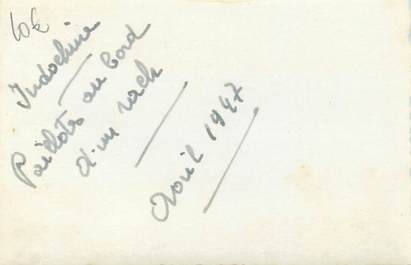 10€
Indochine
Paillotes au bord
d'un rach
Avril 1947